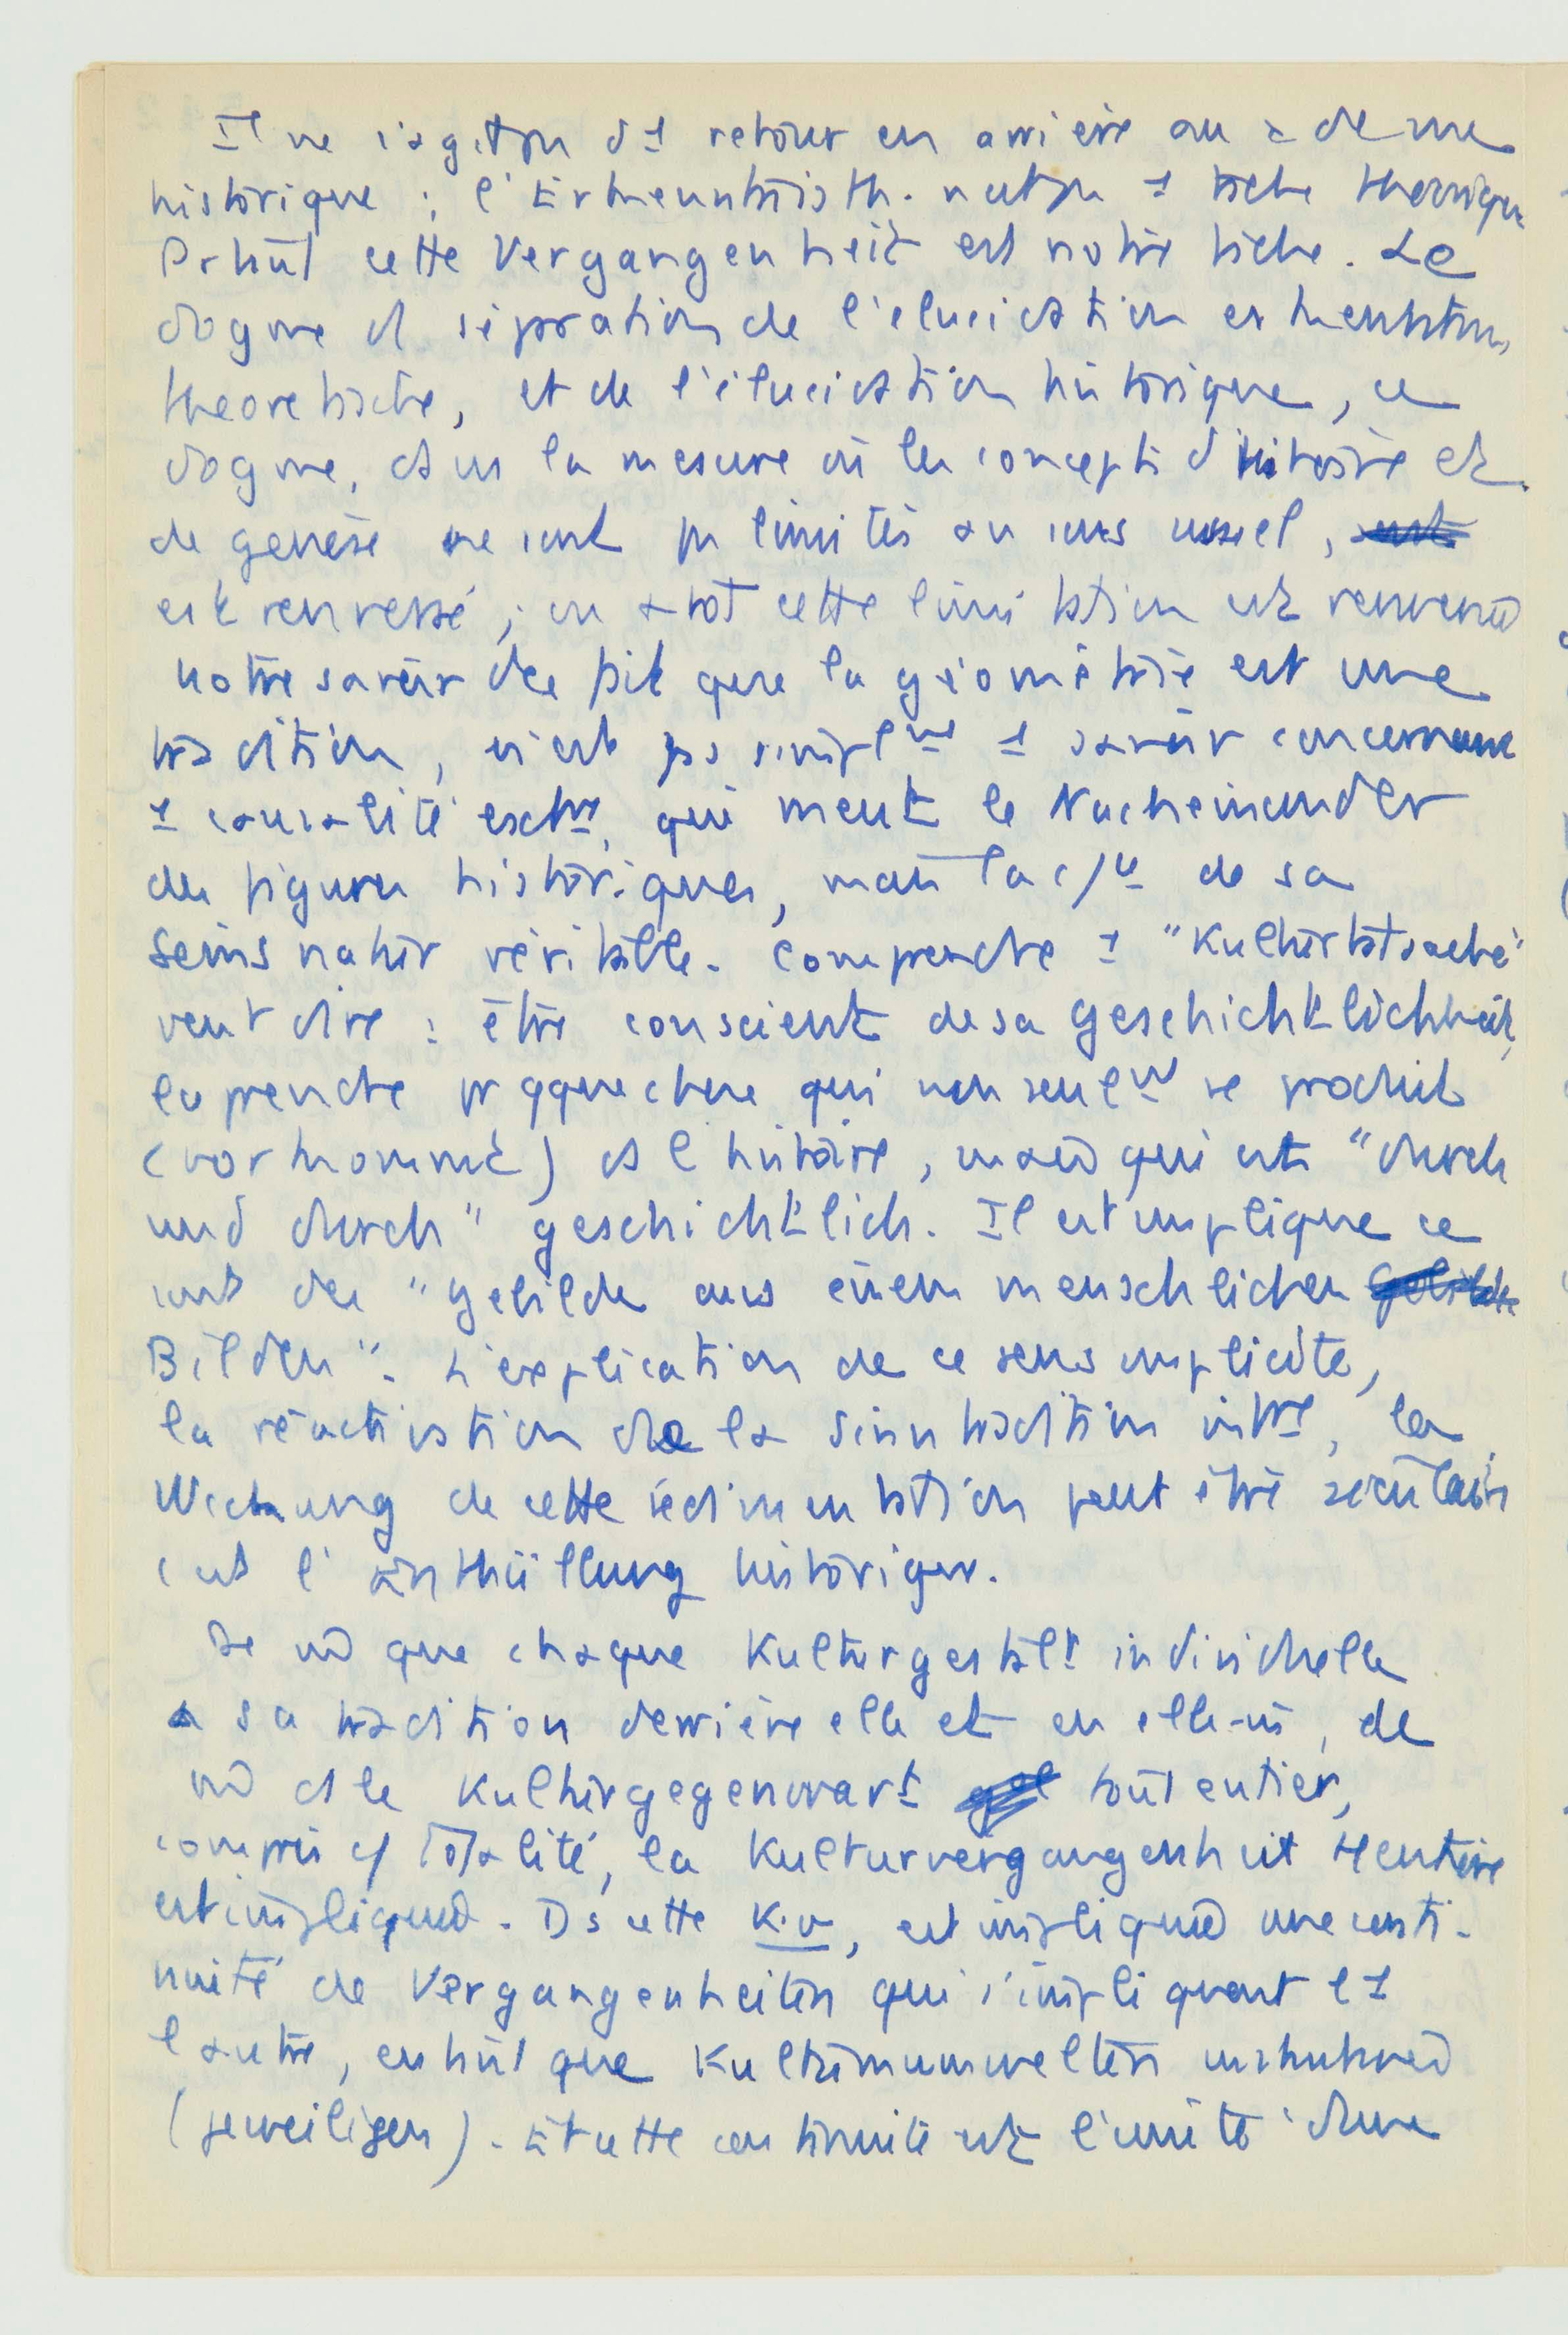 Il ne s'agit pas d'1 retour en arrière au a de me
historique : l'Erkenntnisth. n'est pas 1 tâche théorique
Partout cette Vergangenheit est notre tâche. Le
dogme d séparation de l'élucidation erkenntnis
theoretische, et de l'élucidation historique, ce
dogme, dans la mesure où les concepts d'histoire et
de genèse ne sont pas limités au sens usuel,
est renversé ; ou plutôt cette limitation est renversée
notre savoir du fait que la géométrie est une
tradition, n'est pas simplmt 1 savoir concernant
1 causalité extre, qui meut le Nacheinander
des figures historiques, mais la c/ce de sa
Seinsnatur véritable. Comprendre 1 "Kulturtatsache"
veut dire : être conscient de sa Geschichtlichkeit,
la prendre pr qque chose qui non seulmt se produit
(vorkommt) ds l'histoire, mais qui est "durch
und durch" geschichtlich. Il est impliqué ce
sont des "Gebilde aus einem menschlichen
Bilden". L'explication de ce sens implicite,
la réactivation de la Sinntradition intre, la
Weckung de cette sédimentation peut être séculaire
c'est l'Enthüllung historique.
De md que chaque Kulturgestalt individuelle
a sa tradition derrière elle et en elle-m, de
md ds le Kulturgegenwart tout entier,
compris c/ totalité, la Kulturvergangenheit tt entière
est impliquée. Ds cette K.v, est impliquée une conti-
nuité de Vergangenheiten qui s'impliquent l'1
l'autre, en tant que Kulturumwelten
(jeweiligen). Et cette continuité est l'unité d'une